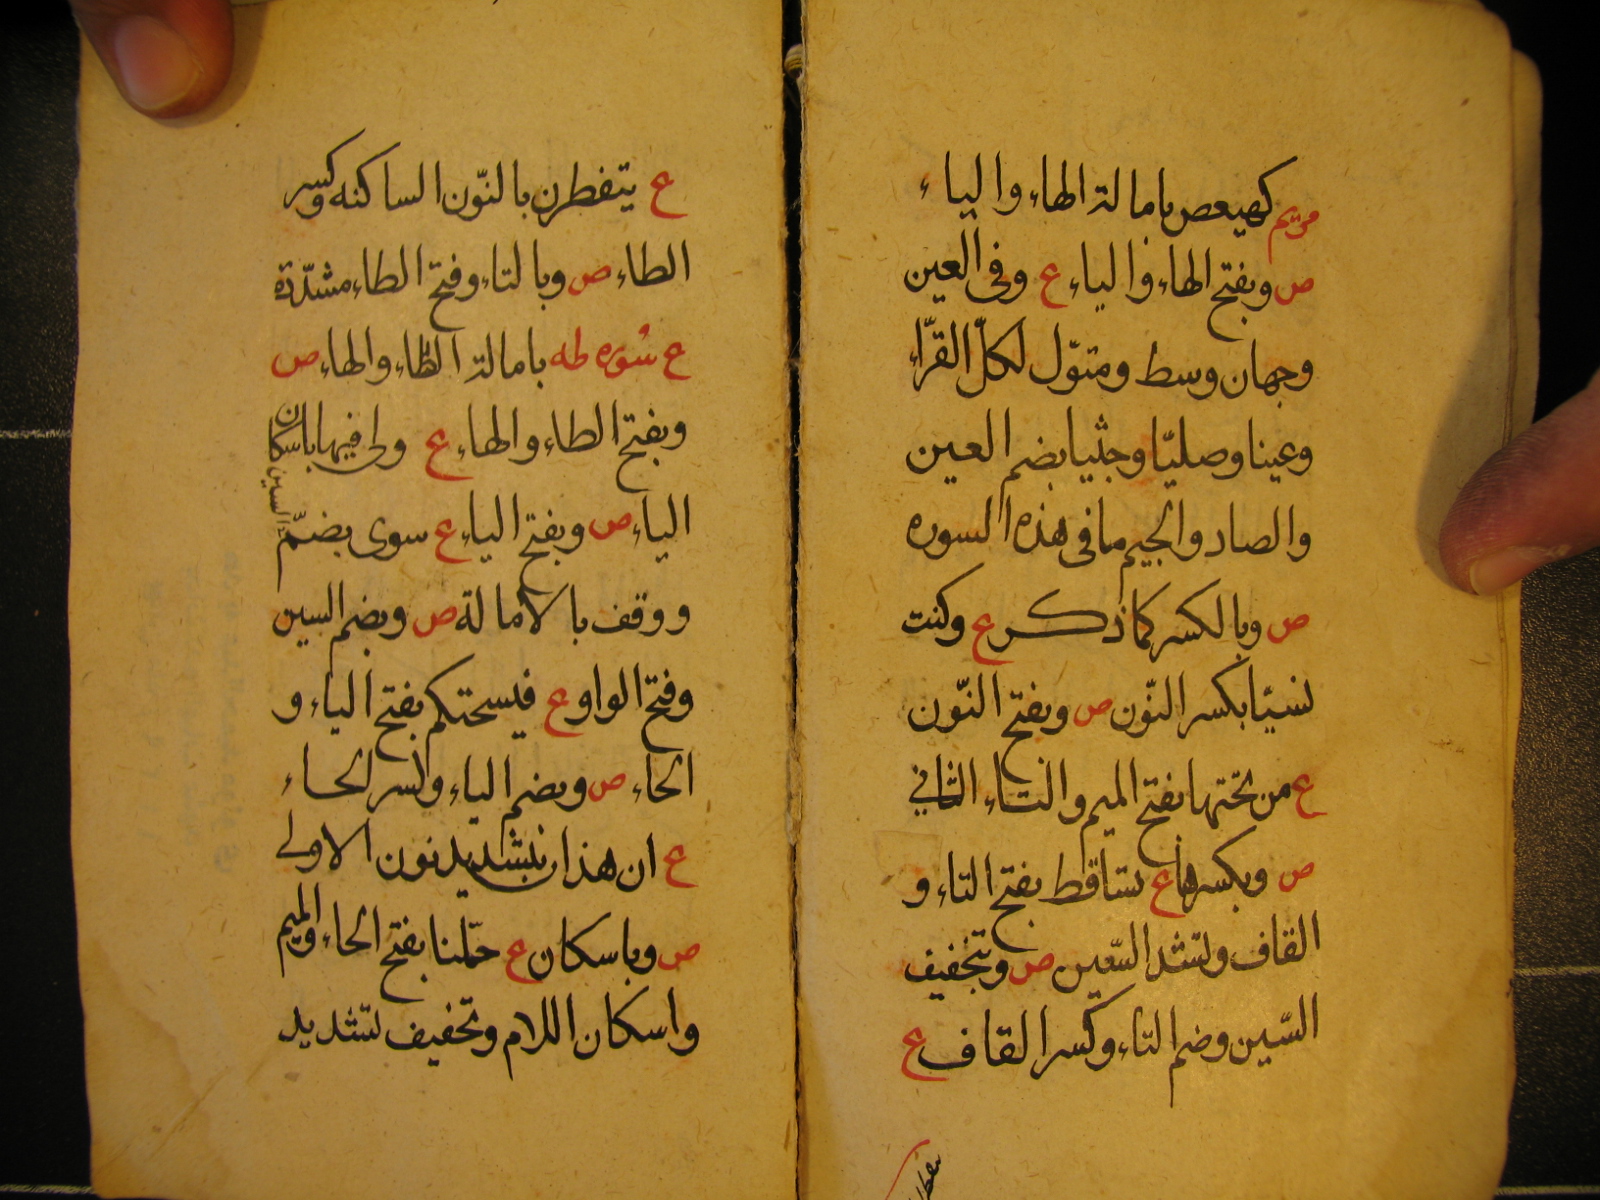 مريم كهيعص بامالة الهاء والياء
ص وبفتح الهاء والياء ع وفى العين
وجهان وسط ومتوّل لكلّ القرّاء
وعيتا وصليّا وجثيا بضم العين
والصاد والجيم ما فى هذه السوره
ص وبالكسر كما ذكر ع وكنت
نسيّا بكسر النّون ص وبفتح النّون
ع من تحتها بفتح الميم والتاء الثانى
ص وبكسرها ع تساقط بفتح التاء و
القاف وتشد السّين ص وبتخفيف
السّين وضم التاء وكسر القاف ع
ع يتفطرن بالنّون الساكنه وكسر
الطاء ص وبالتاء وفتح الطاء مشدّدة
ع سوره طه بامالة الطاء والهاء ص
وبفتح الطاء والهاء ع ولى فيها باسكان
الياء ص وبفتح الياء ع سوى بضمّ السين
ووقف بالامالة ص وبضم السين
وفتح الواو ع فيسحتكم بفتح الياء و
الحاء ص وبضم الياء وكسر الحاء
ع ان هذان بتشديد نون الاولى
ص وباسكان ع حمّلنا بفتح الحاء والميم
واسكان اللام وتخفيف تشديد